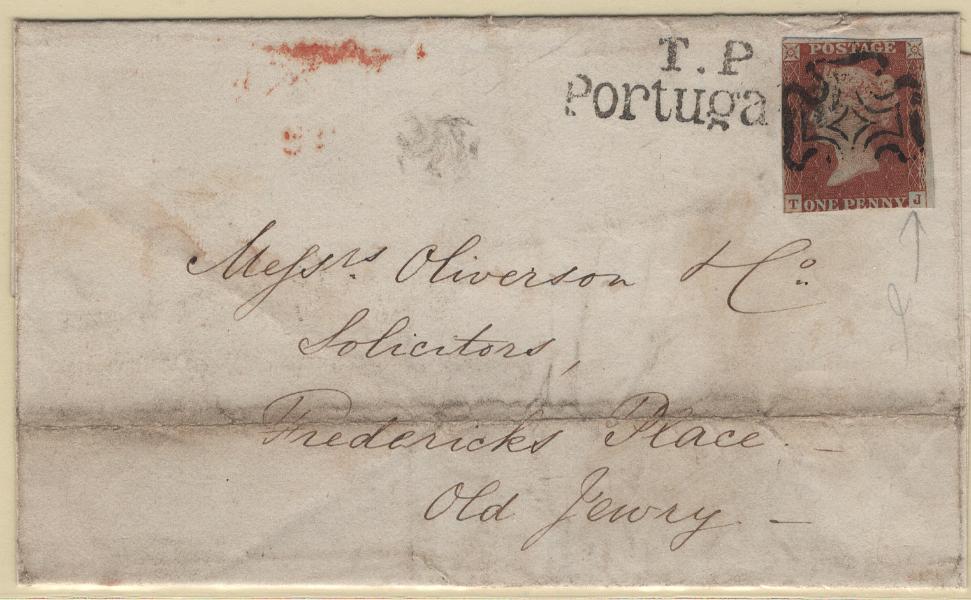 T.P
Portuga
POSTAGE
T ONE PENNY J
Messrs Oliverson & Co.
Solicitors,
Fredericks Place –
Old Jewry –